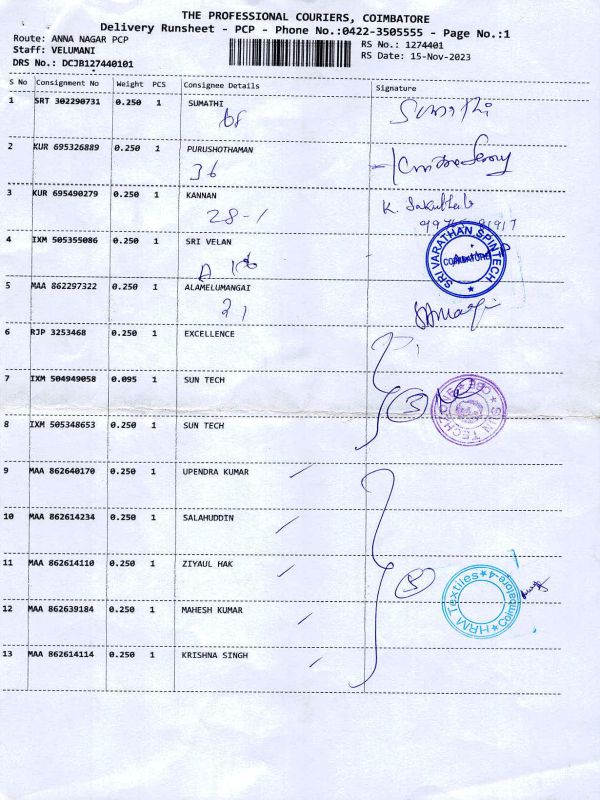 THE PROFESSIONAL COURIERS, COIMBATORE
Delivery Runsheet - PCP - Phone No.:0422-3505555 - Page No.:1
Route: ANNA NAGAR PCP
RS No.: 1274401
Staff: VELUMANI
RS Date: 15-Nov-2023
DRS No.: DCJB127440101
S No Consignment No Weight PCS Consignee Details Signature
1 SRT 302290731 0.250 1 SUMATHI Sumathi
2 KUR 695326889 0.250 1 PURUSHOTHAMAN
36
3 KUR 695490279 0.250 1 KANNAN K.
28-1
4 IXM 505355086 0.250 1 SRI VELAN
SRI VARATHAN SPINTECH
COIMBATORE
5 MAA 862297322 0.250 1 ALAMELUMANGAI
21
6 RJP 3253468 0.250 1 EXCELLENCE
7 IXM 504949058 0.095 1 SUN TECH
3
SUN TECH
8 IXM 505348653 0.250 1 SUN TECH
9 MAA 862640170 0.250 1 UPENDRA KUMAR
10 MAA 862614234 0.250 1 SALAHUDDIN
11 MAA 862614110 0.250 1 ZIYAUL HAK
5
HRM Textiles
Coimbatore-4
12 MAA 862639184 0.250 1 MAHESH KUMAR
13 MAA 862614114 0.250 1 KRISHNA SINGH